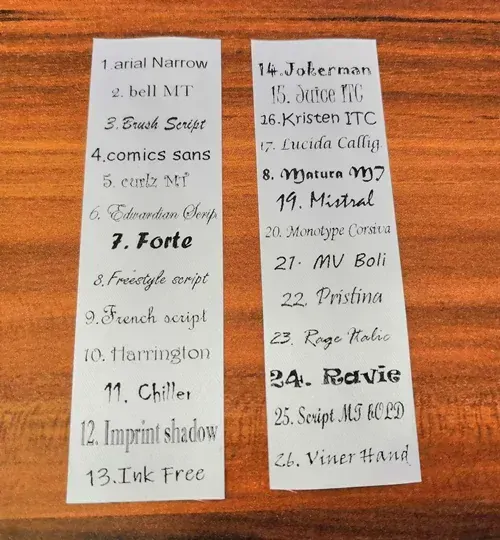 1.arial Narrow
2. bell MT
3. Brush Script
4.comics sans
5. curlz MT
6. Edwardian Scrip
7. Forte
8. Freestyle script
9. French script
10. Harrington
11. Chiller
12. Imprint shadow
13.Ink Free
14.Jokerman
15. Juice ITC
16.Kristen ITC
17. Lucida Callig
8. Matura M7
19. Mistral
20. Monotype Corsiva
21. MV Boli
22. Pristina
23. Rage Italic
24. Ravie
25. Script MT bOLD
26. Viner Hand